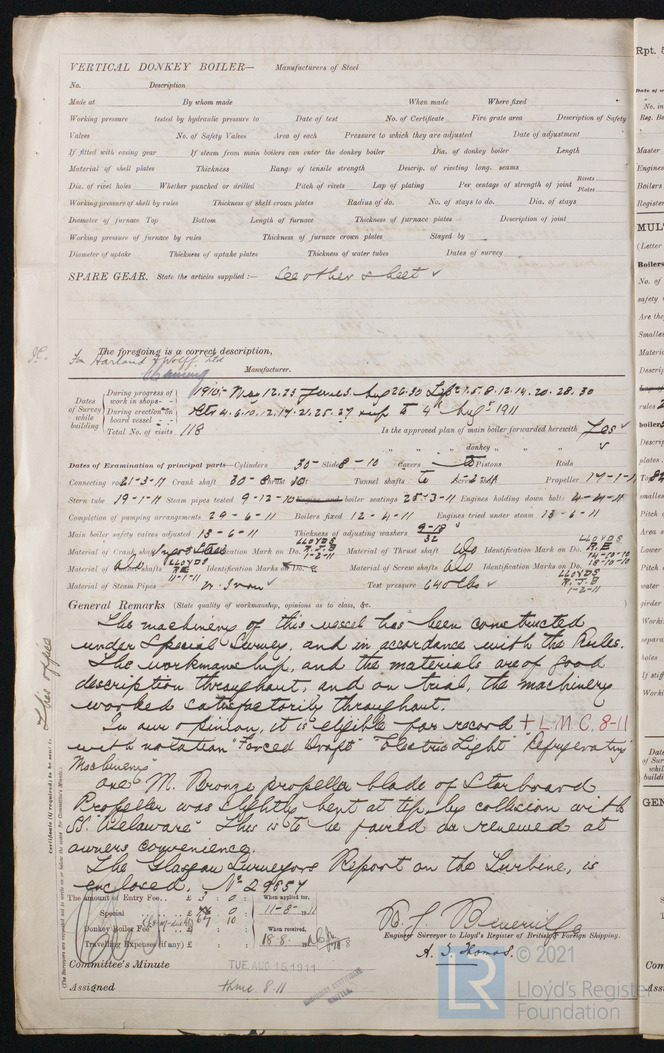 VERTICAL DONKEY BOILER— Manufacturers of Steel
No. Description
Made at By whom made When made Where fixed
Working pressure tested by hydraulic pressure to Date of test No. of Certificate Fire grate area Description of Safety
Valves No. of Safety Valves Area of each Pressure to which they are adjusted Date of adjustment
If fitted with easing gear If steam from main boilers can enter the donkey boiler Dia. of donkey boiler Length
Material of shell plates Thickness Range of tensile strength Descrip. of riveting long. seams
Dia. of rivet holes Whether punched or drilled Pitch of rivets Lap of plating Per centage of strength of joint Rivets Plates
Working pressure of shell by rules Thickness of shell crown plates Radius of do. No. of stays to do. Dia. of stays
Diameter of furnace Top Bottom Length of furnace Thickness of furnace plates Description of joint
Working pressure of furnace by rules Thickness of furnace crown plates Stayed by
Diameter of uptake Thickness of uptake plates Thickness of water tubes Dates of survey
SPARE GEAR. State the articles supplied:— See other sheet ✓
The foregoing is a correct description,
For Harland & Wolff Ltd
Manufacturer.
Dates of Survey while building
During progress of work in shops - - 1910:- May 12. 23 June 3. Aug 26. 30 Sep 2. 5. 8. 12. 14. 20. 28. 30
During erection on board vessel - - - Oct 4. 6. 10. 12. 17. 21. 25. 27 up to 4th Augst 1911
Total No. of visits 118 Is the approved plan of main boiler forwarded herewith Yes ✓
" " " donkey " " "
Dates of Examination of principal parts—Cylinders Slides Covers Pistons Rods
Connecting rods 21-3-11 Crank shaft Thrust Tunnel shafts Screw shaft Propeller 17-1-11
Stern tube 19-1-11 Steam pipes tested 9-12-10 Engine and boiler seatings 28-3-11 Engines holding down bolts 4-4-11
Completion of pumping arrangements 29-6-11 Boilers fixed 12-4-11 Engines tried under steam 13-6-11
Main boiler safety valves adjusted 13-6-11 Thickness of adjusting washers 9-18/32
Material of Crank shaft Ingot Steel Identification Mark on Do. LLOYDS R.J.B 1-2-11 Material of Thrust shaft do Identification Mark on Do. LLOYDS R.E 14-10-10 18-10-10
Material of Tunnel shafts do Identification Marks on Do. LLOYDS RE 11-1-11 Material of Screw shafts do Identification Marks on Do. LLOYDS R.J.B 1-2-11
Material of Steam Pipes W. Iron ✓ Test pressure 640 lbs ✓
General Remarks (State quality of workmanship, opinions as to class, &c.
The machinery of this vessel has been constructed
under Special Survey, and in accordance with the Rules.
The workmanship, and the materials are of good
description throughout, and on trial, the machinery
worked satisfactorily throughout.
In our opinion, it is eligible for record + L.M.C. 8-11
with notation "Forced Draft" "Electric Light" "Refrigerating
Machinery"
One M. Bronze propeller blade of Starboard
Propeller was slightly bent at tip by collision with
SS. "Delaware" This is to be faired or renewed at
owners convenience.
The Glasgow Surveyors Report on the Turbine, is
enclosed. No 29857
Certificate (if required) to be sent to This office
The amount of Entry Fee .. £ 3 : 0 : When applied for,
Special £ 11-8-11
Donkey Boiler Fee £ When received,
Travelling Expenses (if any) £ 18-8-11
Engineer Surveyor to Lloyd's Register of British & Foreign Shipping.
A. S. Thomas.
Committee's Minute TUE. AUG 15 1911
Assigned + LMC 8.11
© 2021
LR
Lloyd's Register
Foundation
Rpt. 5
No. in
Reg. Bo
Master
Engines
Boilers
Register
MUL
(Letter
Boilers
No. of
safety
Are the
Smalles
Materi
Descrip